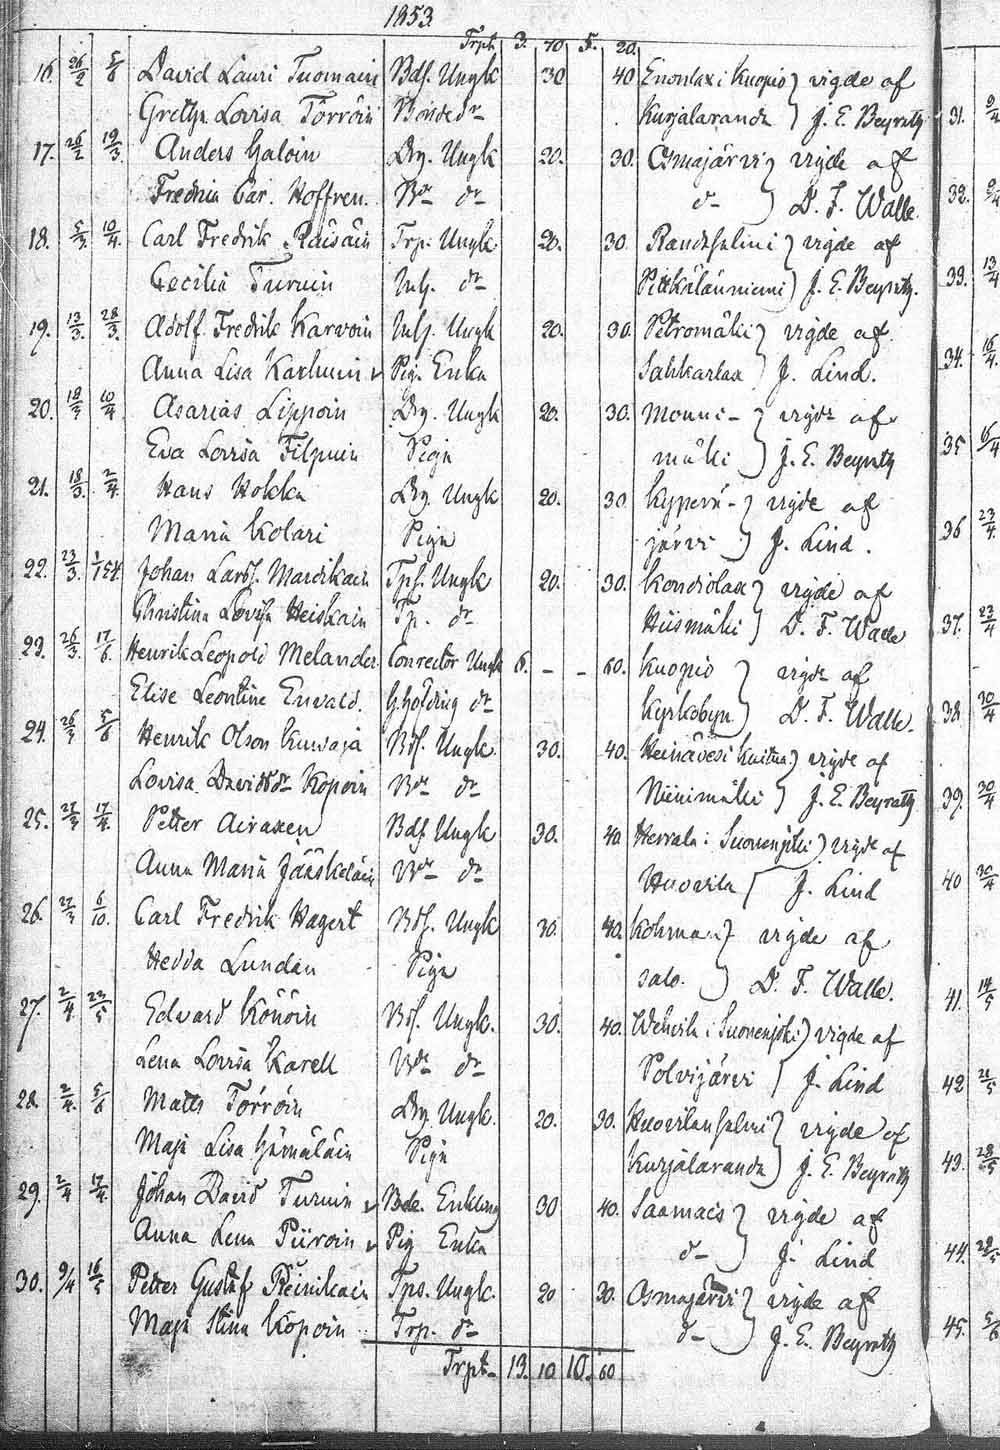 1853.
Trpt. 3. 40 5. 20.
16. 26/2 5/6 David Lauri Tuomain Bdf. Ungk 30 40 Enonlax i Kuopio ) vigde af
Gretha Lovisa Törröin Bonde dr Kurjalaranda ) J. E. Beyrath
17. 26/2 19/3 Anders Galoin Dry. Ungk 20. 30. Osmajärvi ) vigde af
Fredrica Car. Hoffren. Bde dr d- ) D. F. Walle.
18. 5/3 10/4. Carl Fredrik Räisäin Trp. Ungk 20. 30. Randsalmi ) vigde af
Cecilia Turuin Inh. dr Pitkälänniemi ) J. E. Beyrath.
19. 13/3. 28/3. Adolf Fredrik Karvoin Inh. Ungk 20. 30. Petromäki ) vigde af
Anna Lisa Karhuin Pig. Enka Sahkarlax ) J. Lind.
20. 18/3 10/4 Asarias Lippoin Dry. Ungk 20. 30. Monni- ) vigde af
Eva Lovisa Filpuin Piga mäki ) J. E. Beyrath
21. 18/3. 2/4. Hans Hokka Dry. Ungk 20. 30 Kyperä- ) vigde af
Maria Kolari Piga järvi ) J. Lind.
22. 23/3. 1/1 54. Johan Larsf. Mardikain Tpf. Ungk 20. 30. Kondiolax ) vigde af
Christina Lovisa Heiskain Tp. dr Hiismäki ) D. F. Walle
23. 26/3. 17/6. Henrik Leopold Melander Conrector Ungk 6. - - 60. Kuopio ) vigde af
Elise Leontine Enwald. dr Kyrkobyn ) D. F. Walle.
24. 26/3 5/6 Henrik Olson Kuwaja Bdf. Ungk. 30. 40. Heinävesi ) vigde af
Lovisa Davidsdr Kopoin Bde dr Niinimäki ) J. E. Beyrath
25. 27/3 17/4. Petter Airaxen Bdf. Ungk 30. 40 Herrala i Suonenjoki ) vigde af
Anna Maria Jääskeläin Bde dr Huovila ) J. Lind
26. 27/3 6/10. Carl Fredrik Hagert Bdf. Ungk 30. 40. Kohma- ) vigde af
Hedda Lundan Piga salo. ) D. F. Walle.
27. 2/4 22/5 Edvard Könöin Bdf. Ungk. 30. 40. i Suonenjoki ) vigde af
Lena Lovisa Karell Bde dr Polvijärvi ) J. Lind
28. 2/4. 5/6 Matts Törröin Dry. Ungk. 20. 30. Huovilansalmi ) vigde af
Maja Lisa Hämäläin Piga Kurjalaranda ) J. E. Beyrath
29. 2/4 17/4 Johan David Turuin Bde. Enkling 30 40. Saamais ) vigde af
Anna Lena Piiroin Pig Enka d- ) J. Lind
30. 9/4 16/5 Petter Gustaf Reinikain Tps. Ungk. 20 30. Osmajärvi ) vigde af
Maja Stina Kopoin Trp. dr d- ) J. E. Beyrath
Trpt- 13. 10 10. 60
31. 9/4
32. 9/4
33. 13/4
34. 16/4.
35 16/4
36 23/4.
37. 23/4
38 30/4
39. 30/4
40 30/4
41. 14/5
42 21/5
43. 28/5
44. 29/5
45. 5/6